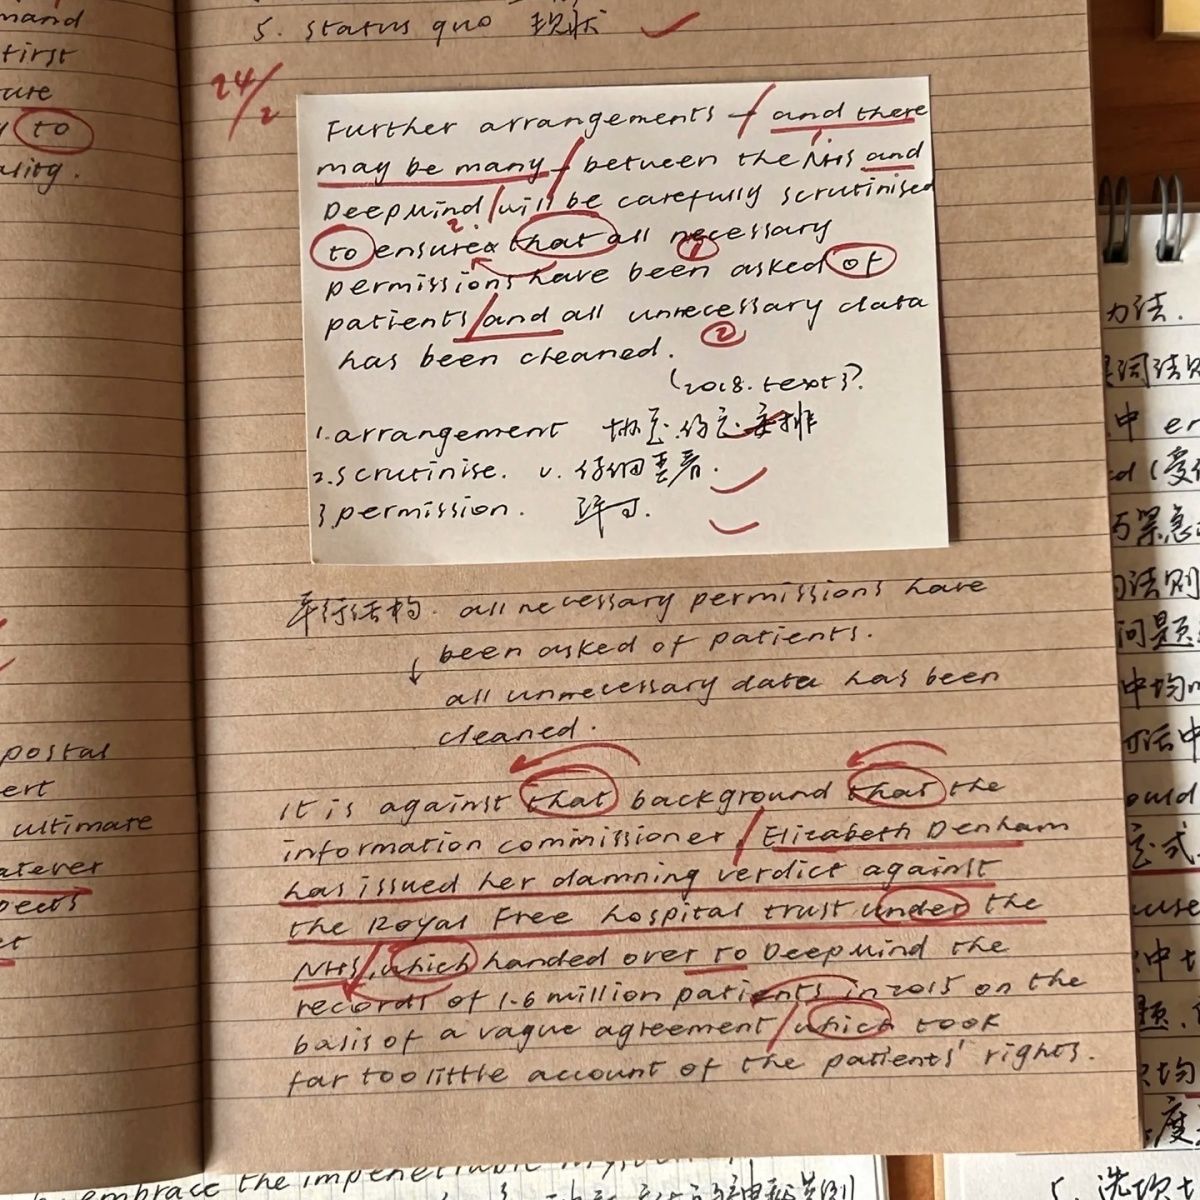 mand
first
ure
to
ality.
postal
ert
ultimate
atever
pects
et
5. status quo 现状
24/2
Further arrangements – and there
may be many – between the NHS and
DeepMind will be carefully scrutinised
to ensure that all necessary
permissions have been asked of
patients and all unnecessary data
has been cleaned.
(2018. text3)?
1. arrangement 协定.约定.安排
2. scrutinise. v. 仔细查看.
3 permission. 许可.
平行结构. all necessary permissions have
been asked of patients.
↓
all unnecessary data has been
cleaned.
It is against that background that the
information commissioner, Elizabeth Denham
has issued her damning verdict against
the Royal Free hospital trust under the
NHS, which handed over to DeepMind the
records of 1.6 million patients in 2015 on the
basis of a vague agreement which took
far too little account of the patients' rights.
embrace the impenetrable
办法.
中 er
与紧急
法则
问题
中均
话中
ould
定式
use
中
题.
均
度
5. 选项